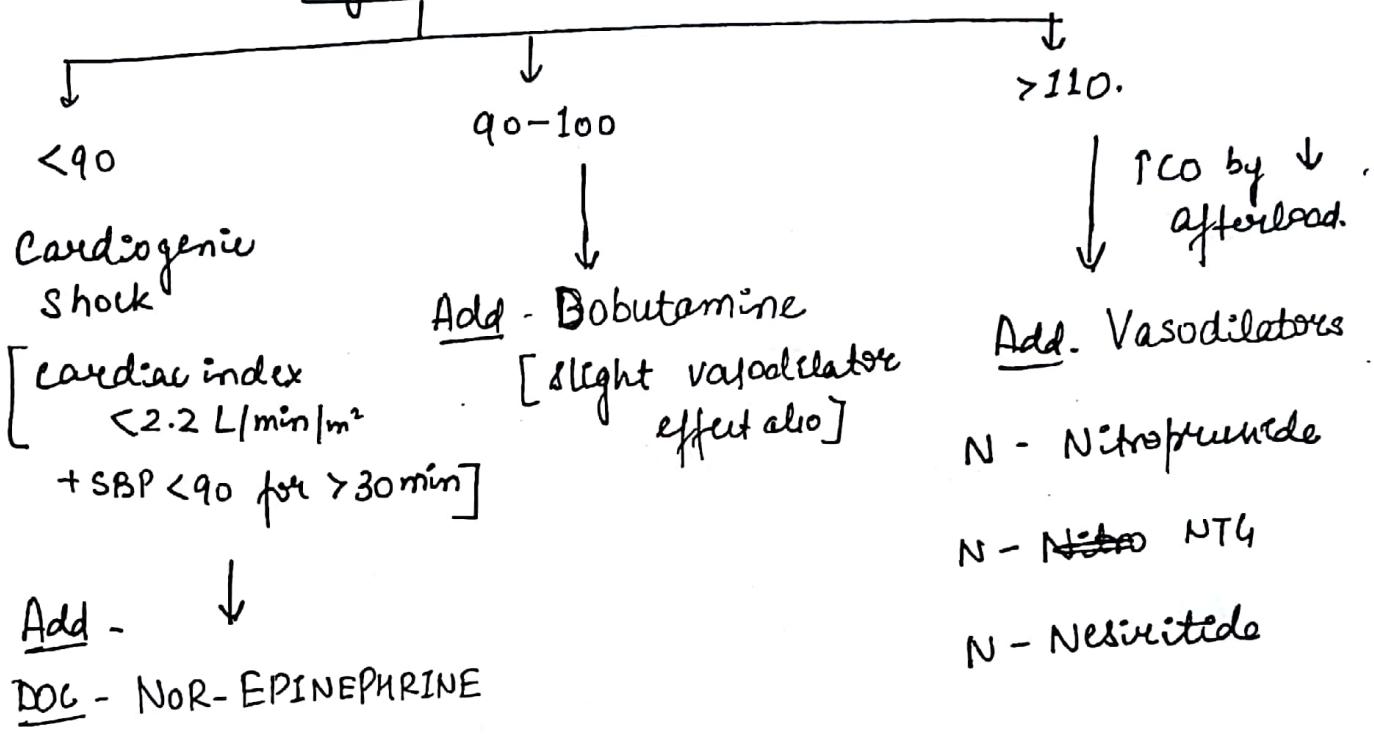 <90
Cardiogenic
Shock
[cardiac index
<2.2 L/min/m²
+ SBP <90 for >30 min]
Add -
DOC - NOR-EPINEPHRINE
90-100
Add - Dobutamine
[slight vasodilator
effect also]
>110.
↑CO by ↓
afterload.
Add. Vasodilators
N - Nitroprusside
N - Nitro NTG
N - Nesiritide